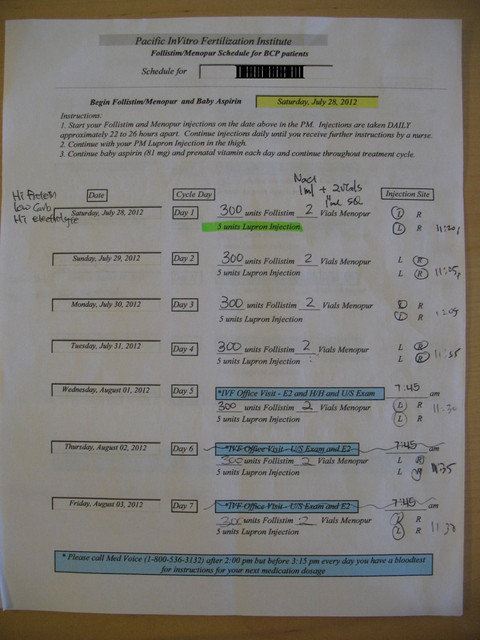 Pacific InVitro Fertilization Institute
Follistim/Menopur Schedule for BCP patients
Schedule for
Begin Follistim/Menopur and Baby Aspirin Saturday, July 28, 2012
Instructions:
1. Start your Follistim and Menopur injections on the date above in the PM. Injections are taken DAILY
approximately 22 to 26 hours apart. Continue injections daily until you receive further instructions by a nurse.
2. Continue with your PM Lupron Injection in the thigh.
3. Continue baby aspirin (81 mg) and prenatal vitamin each day and continue throughout treatment cycle.
Hi Protein
low Carb
Hi electrolyte
Date Cycle Day Injection Site
1ml + 2 vials
Saturday, July 28, 2012 Day 1 300 units Follistim 2 Vials Menopur L R
5 units Lupron Injection L R
Sunday, July 29, 2012 Day 2 300 units Follistim 2 Vials Menopur L R
5 units Lupron Injection L R
Monday, July 30, 2012 Day 3 300 units Follistim 2 Vials Menopur L R
5 units Lupron Injection L R
Tuesday, July 31, 2012 Day 4 300 units Follistim 2 Vials Menopur L R
5 units Lupron Injection L R
Wednesday, August 01, 2012 Day 5 *IVF Office Visit - E2 and H/H and U/S Exam 7:45 am
300 units Follistim 2 Vials Menopur L R 11:30
5 units Lupron Injection L R
Thursday, August 02, 2012 Day 6 *IVF Office Visit - U/S Exam and E2 7:45 am
300 units Follistim 2 Vials Menopur L R
5 units Lupron Injection L R
Friday, August 03, 2012 Day 7 *IVF Office Visit - U/S Exam and E2 7:45 am
300 units Follistim 2 Vials Menopur L R
5 units Lupron Injection L R
* Please call Med Voice (1-800-536-5132) after 2:00 pm but before 3:15 pm every day you have a bloodtest
for instructions for your next medication dosage